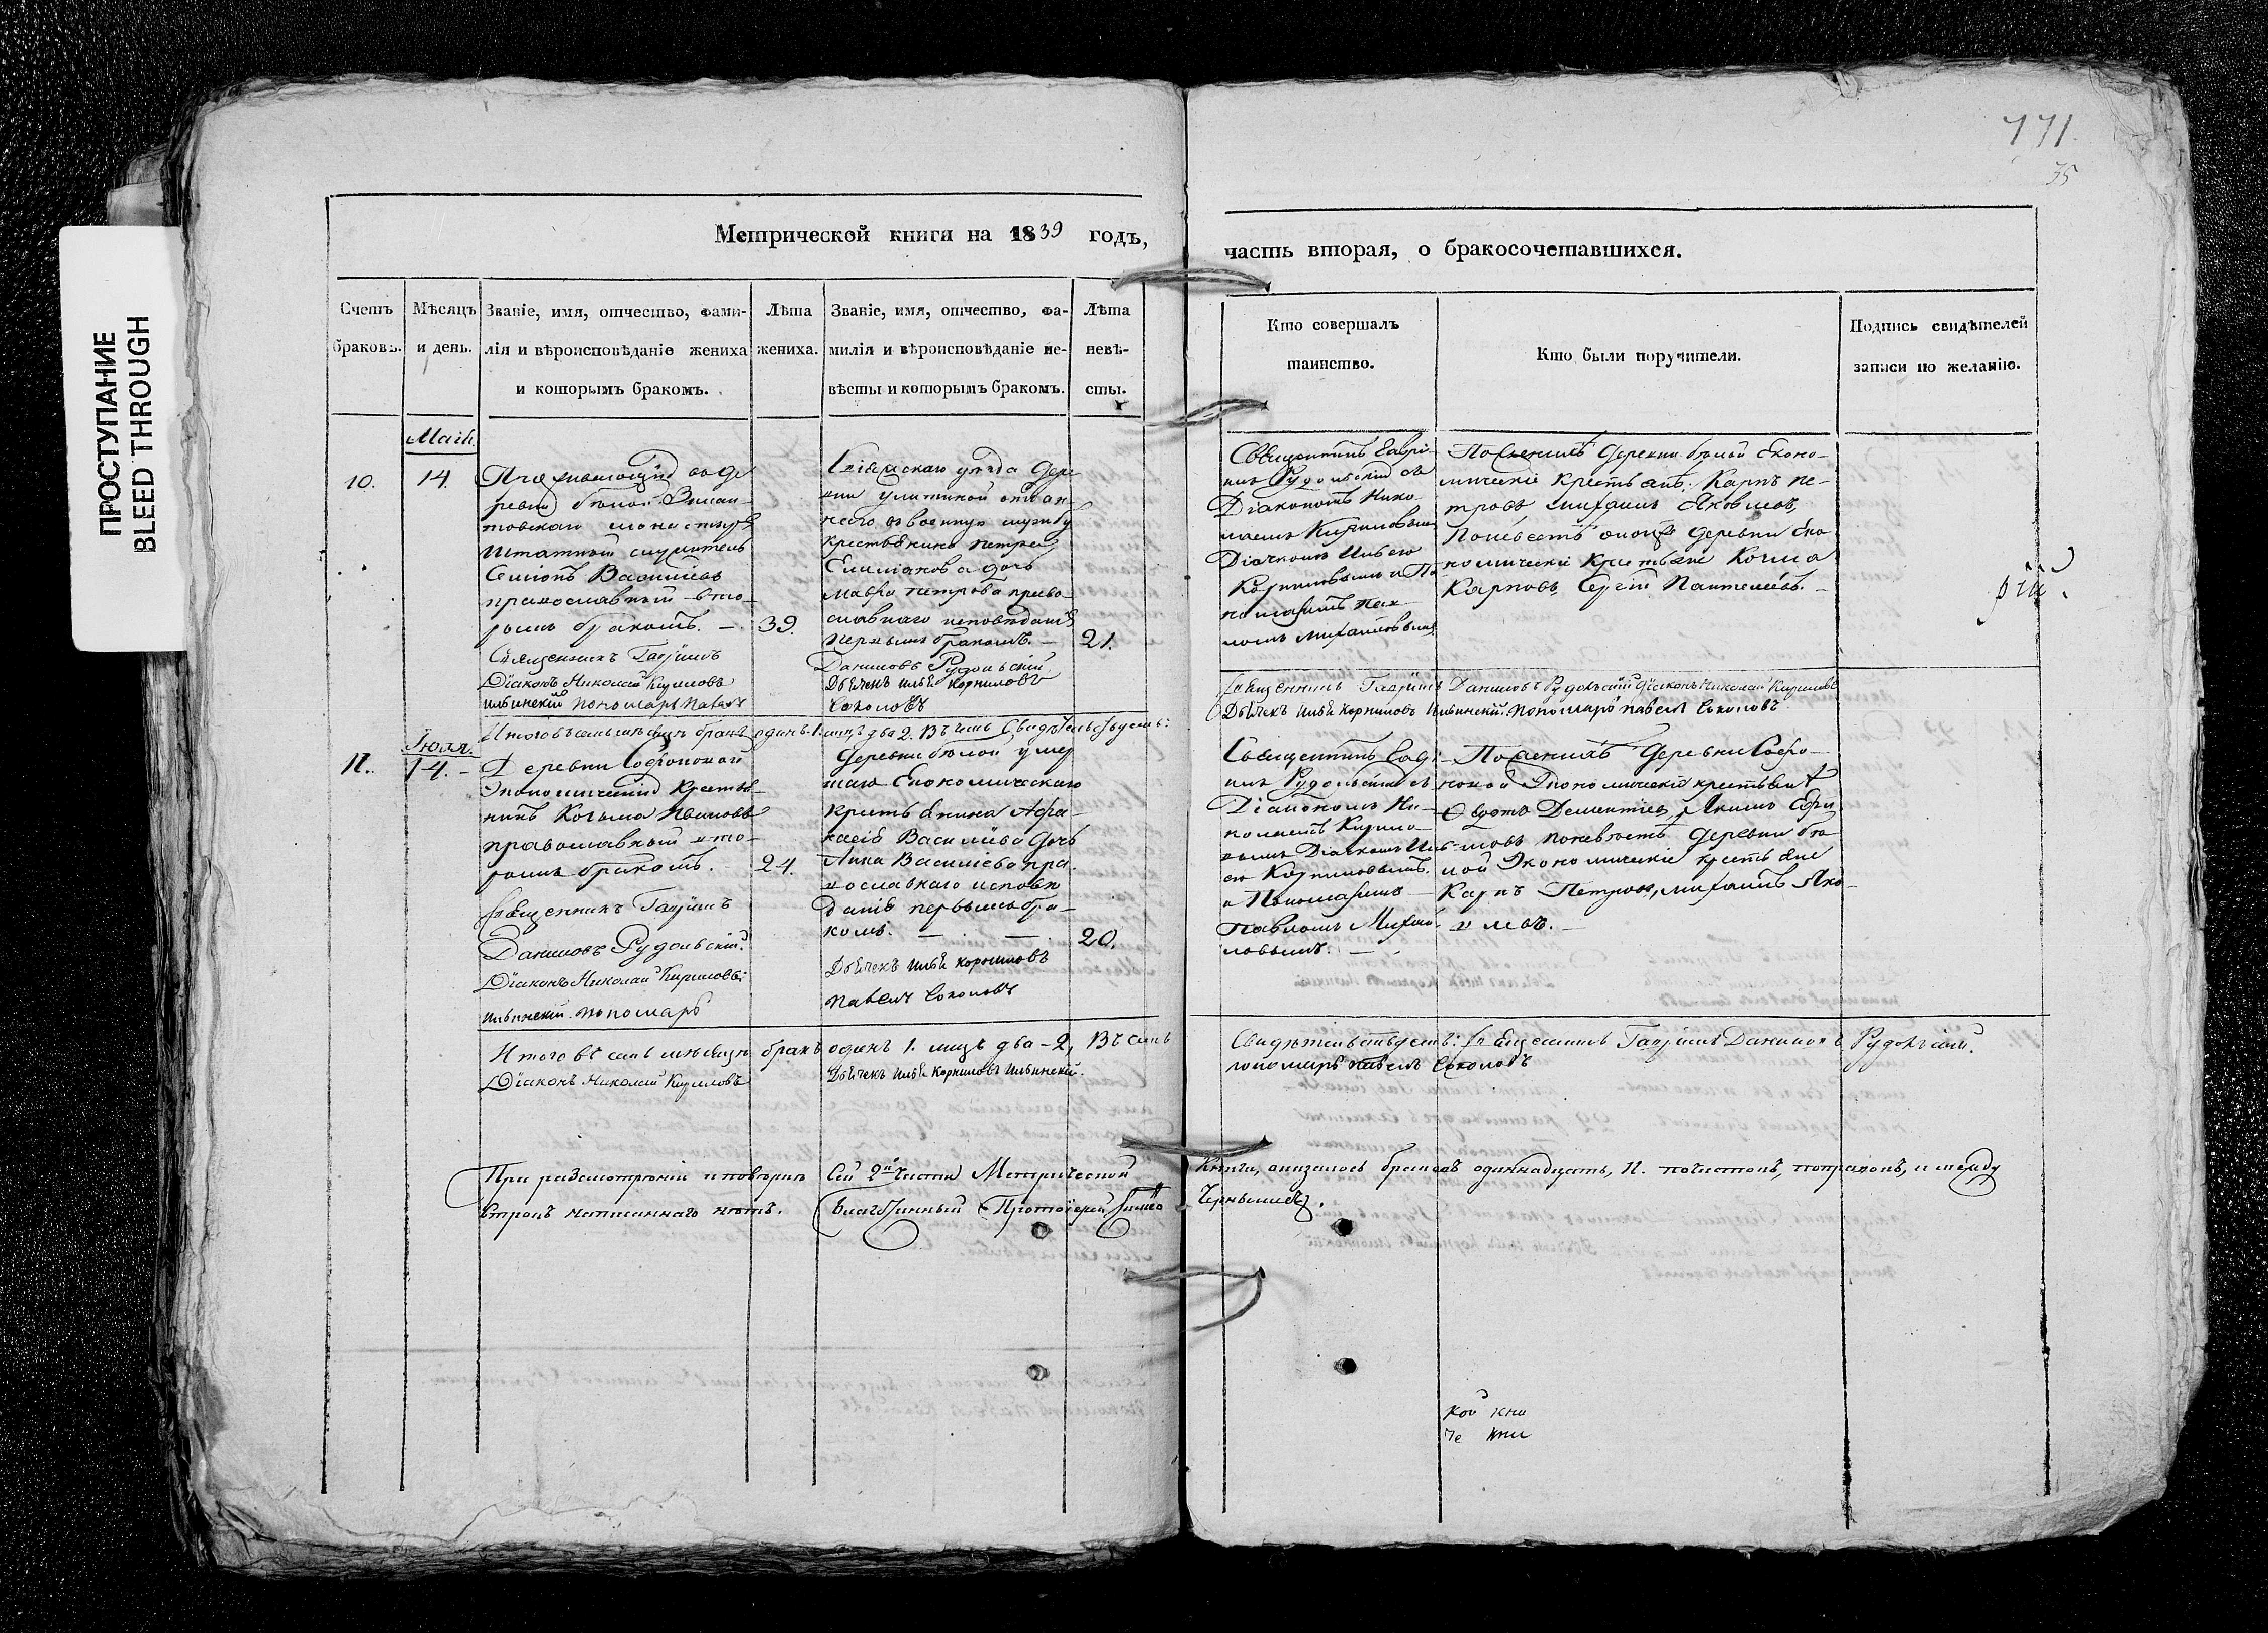 ПРОСТУПАНИЕ
BLEED THROUGH
171.
35
Метрической книги на 1839 годъ,
часть вторая, о бракосочетавшихся.
Счетъ
браковъ.
Мѣсяцъ
и день.
Званіе, имя, отчество, фами-
лія и вѣроисповѣданіе жениха
и которымъ бракомъ.
Лѣта
жениха.
Званіе, имя, отчество, фа-
милія и вѣроисповѣданіе не-
вѣсты и которымъ бракомъ.
Лѣта
невѣ-
сты.
Кто совершалъ
таинство.
Кто были поручители.
Подпись свидѣтелей
записи по желанію.
Маія.
10.
14.
Проживающій въ де
ревни бѣлой Зилан-
товскаго монастыря
Штатный служитель
Семіонъ Васильевъ
православный вто-
рымъ бракомъ. —
39.
Священникъ Гавріилъ
Діаконъ Николай Кириловъ
Ильинскій пономарь Павелъ
уѣзда дере
вни отдан
наго въ военную службу
крестьянина Петра
Емиліанова дочь
Мавра Петрова право-
славнаго исповѣданія
первымъ бракомъ. —
21.
Даниловъ Рудольскій
Дьячекъ Илья Корниловъ
Соколовъ
Священникъ Гаврі-
илъ Рудольскій съ
Діакономъ Нико-
лаемъ Кириловымъ
Діачкомъ Ильею
Корниловымъ и По
номаремъ Пав-
ломъ Михайловымъ
По женихѣ деревни бѣлой Еконо-
мическіе крестьяне: Карпъ Пе-
тровъ Михаилъ Яковлевъ,
По невѣстѣ оной деревни Эко
номическіе крестьяне Козма
Карповъ, Сергій Пантелеевъ. —
Священникъ Гавріилъ Даниловъ Рудольскій Діаконъ Николай Кириловъ
Дьячекъ Илья Корниловъ Ильинскій. пономарь Павелъ Соколовъ
Итого въ семъ мѣсяцѣ бракъ одинъ 1. лицъ два 2. Въ чемъ Свидѣтельствуемъ:
Іюля.
11.
14. —
Деревни Софоновой
Экономическій крестья-
нинъ Козьма Ивановъ
православный вто-
рымъ бракомъ.
24.
Священникъ Гавріилъ
Даниловъ Рудольскій.
Діаконъ Николай Кириловъ:
Ильинскій. пономарь
Деревни бѣлой умер
шаго Економическаго
крестьянина Афа-
насія Васильева дочь
Анна Васильева пра-
вославнаго исповѣ
данія первымъ бра-
комъ. — —
20.
Дьячекъ Илья Корниловъ
Павелъ Соколовъ
Священникъ Гаврі-
илъ Рудольскій съ
Діакономъ Ни-
колаемъ Кирило-
вымъ Діачкомъ Иль-
ею Корниловымъ.
и Пономаремъ
Павломъ Михай-
ловымъ. —
По женихѣ деревни Софо-
новой Экономическіе крестьяне
Ѳедотъ Дементіевъ, Якимъ
По невѣстѣ деревни бѣ-
лой Экономическіе крестьяне
Карпъ Петровъ, Михаилъ Яко-
влевъ. —
Итого въ семъ мѣсяцѣ бракъ одинъ 1. лицъ два — 2, Въ чемъ
Свидѣтельствуемъ: Священникъ Гавріилъ Даниловъ Рудольскій.
Діаконъ Николай Кириловъ Дьячекъ Илья Корниловъ Ильинскій.
пономарь Павелъ Соколовъ
При разсмотрѣніи и повѣркѣ сей 2й части Метрической Книги, оказалось браковъ одиннадцать, 11. почистокъ, поправокъ, и между
строкъ написаннаго нѣтъ. Благочинный Протоіерей
кой кни
че кни